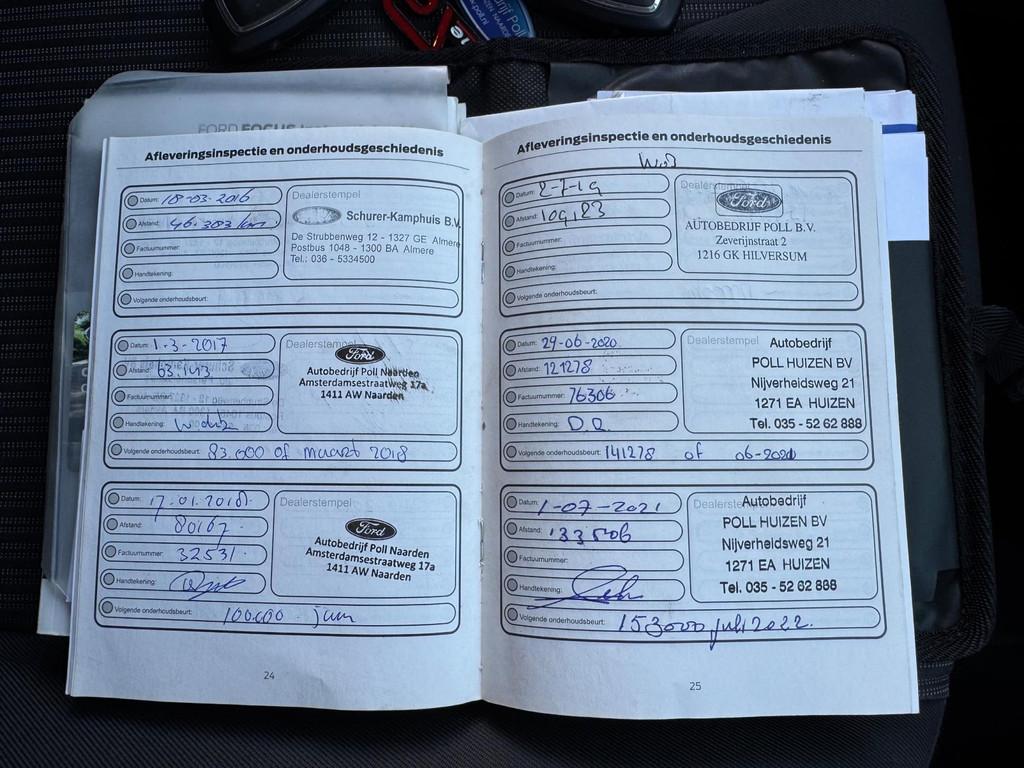 FORD FOCUS
Afleveringsinspectie en onderhoudsgeschiedenis
Datum: 18-03-2016
Afstand: 46.303/km
Factuurnummer:
Handtekening:
Volgende onderhoudsbeurt:
Dealerstempel
Schurer-Kamphuis B.V.
De Strubbenweg 12 - 1327 GE Almere
Postbus 1048 - 1300 BA Almere
Tel.: 036 - 5334500
Datum: 1-3-2017
Afstand:
Factuurnummer:
Handtekening:
Volgende onderhoudsbeurt: 83.000 of maart 2018
Dealerstempel
Ford
Autobedrijf Poll Naarden
Amsterdamsestraatweg 17a
1411 AW Naarden
Datum: 17.01.2018.
Afstand: 80167.
Factuurnummer: 32531.
Handtekening:
Volgende onderhoudsbeurt: 100.000 - juni
Dealerstempel
Ford
Autobedrijf Poll Naarden
Amsterdamsestraatweg 17a
1411 AW Naarden
24
Afleveringsinspectie en onderhoudsgeschiedenis
Datum: 2-7-19
Afstand: 109,123
Factuurnummer:
Handtekening:
Volgende onderhoudsbeurt:
Dealerstempel
Ford
AUTOBEDRIJF POLL B.V.
Zeverijnstraat 2
1216 GK HILVERSUM
Datum: 29-06-2020
Afstand: 121278
Factuurnummer: 76306
Handtekening: D.D.
Volgende onderhoudsbeurt: 141278 of 06-2021
Dealerstempel
Autobedrijf
POLL HUIZEN BV
Nijverheidsweg 21
1271 EA HUIZEN
Tel. 035 - 52 62 888
Datum: 1-07-2021
Afstand: 133506
Factuurnummer:
Handtekening:
Volgende onderhoudsbeurt: 153000 juli 2022.
Dealerstempel
Autobedrijf
POLL HUIZEN BV
Nijverheidsweg 21
1271 EA HUIZEN
Tel. 035 - 52 62 888
25